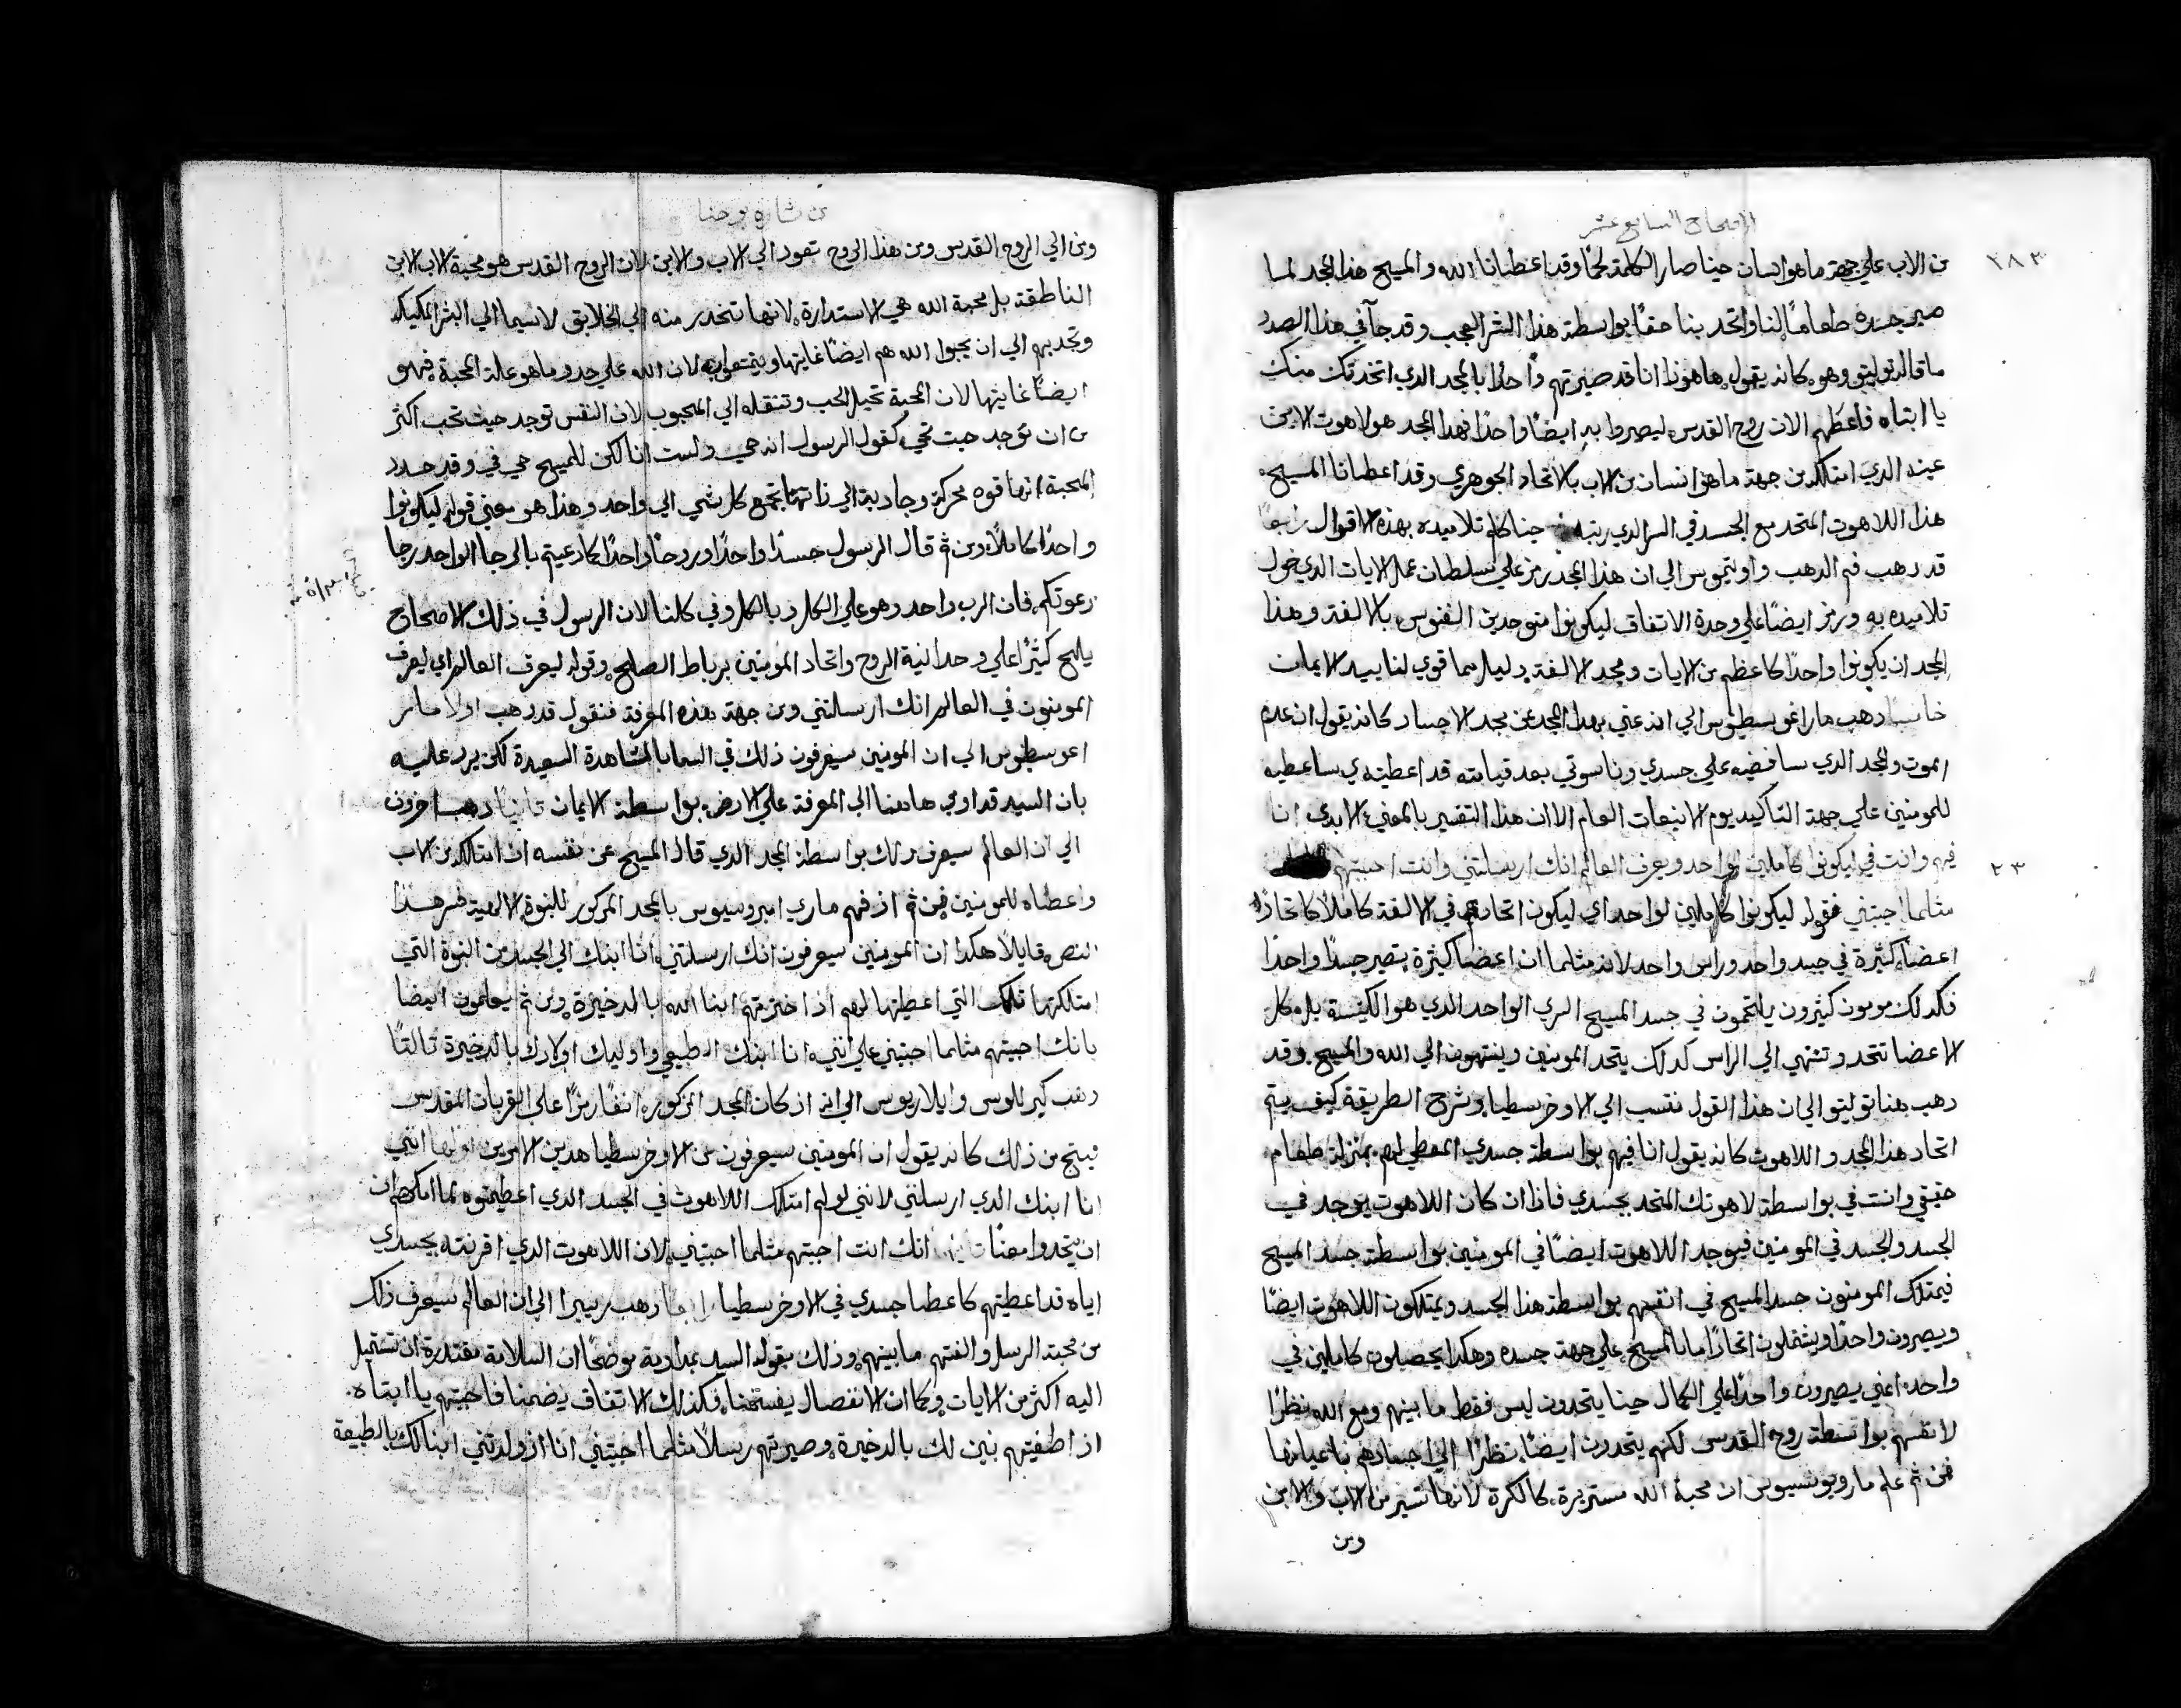 الاصحاح السابع عشر
٢٨٣
من الاب علي جهة ما هو انسان حينا صار الكلمة لحمًا وقد اعطانا الله والمسيح هذا المجد لما
صير جسده طعامًا لنا واتحد بنا حقًا بواسطة هذا السر العجيب وقد جآ في هذا الصدد
ما قاله توليتو وهو كانه يقول هاهوذا انا قد صيرتهم واحدًا بالمجد الدي اتخدتك منك
يا ابتاه فاعطهم الان روح القدس ليصيروا به ايضًا واحدًا فهذا المجد هو لاهوت الابن
عينه الدي امتلكه من جهة ما هو انسان من الاب بالاتحاد الجوهري وقد اعطانا المسيح
هذا اللاهوت المتحد مع الجسد في السر الدي رتبه حينا كلم تلاميده بهذه الاقوال رابعًا
قد دهب فم الدهب واوتيموس الي ان هذا المجد رمز علي سلطان عمل الايات الدي خول
تلاميده به ورمز ايضًا علي وحدة الاتفاق ليكونوا متوحدين النفوس بالالفة وهذا
المجد ان يكونوا واحدًا كاعظم من الايات ومجد الالفة دليل سما قوي لتاييد الايمان
خامسًا دهب مار اغوسطينوس الي انه عني بهذا المجد عن مجد الاجساد كانه يقول ان عدم
الموت والمجد الدي سافضيه علي جسدي وناسوتي بعد قيامته قد اعطيته اي ساعطيه
للمومنين علي جهة التاكيد يوم الانبعات العام الا ان هذا التفسير بالمعني الابدي انا
٢٣
فيهم وانت في ليكونوا كاملين لواحد ويعرف العالم انك ارسلتني وانت احببتهم
مثلما احببتني فقوله ليكونوا كاملين لواحد اي ليكون اتحادهم في الالفة كاملًا كاتحاد
اعضآ كثيرة في جسد واحد وراس واحد لانه مثلما ان اعضآ كثيرة تصير جسدًا واحدًا
فكدلك مومنون كثيرون يلتحمون في جسد المسيح السري الواحد الدي هو الكنيسة بل مكل
الاعضا تتحد وتنتهي الي الراس كدلك يتحد المومنين وينتهون الي الله والمسيح وقد
دهب هنا توليتو الي ان هذا القول ننتسب الي الاوخرسطيا وشرح الطريقة كيف يتم
اتحاد هذا المجد واللاهوت كانه يقول انا فيهم بواسطة جسدي المعطي لهم بمنزلة طعام
حقيقي وانت في بواسطة لاهوتك المتحد بجسدي فاذا ان كان اللاهوت يوجد في
الجسد والجسد في المومنين فيوجد اللاهوت ايضًا في المومنين بواسطة جسد المسيح
فيمتلك المومنون جسد المسيح في انفسهم بواسطة هذا الجسد ويمتلكون اللاهوت ايضًا
ويصيرون واحدًا ويتفعلون اتحادًا ما بالمسيح علي جهة جسده وهكذا يحصلون كاملين في
واحد اعني يصيرون واحدًا علي الكمال حينا يتحدون ليس فقط ما بينهم ومع الله نظرًا
لانفسهم بواسطة روح القدس لكنهم يتحدون ايضًا نظرًا الي اجسادهم باعيانها
فمن ثم علم مار ديونيسيوس ان محبة الله مستديرة كالكرة لانها تسير من الاب والابن
ومن
من بشارة يوحنا
ومن الي الروح القدس ومن هذا الروح تعود الي الاب والابن لان الروح القدس هو محبة الاب الابن
الناطقة بل محبة الله هي الاستدارة لانها تنحدر منه الي الخلايق لاسيما الي البشر الملكيكه
وتجدبهم الي ان يحبوا الله هم ايضًا غايتها ويتمتعوا به لان الله علي حد وما هو علة المحبة فهو
ايضًا غايتها لان المحبة تحيل المحب وتنقله الي المحبوب لان النفس توجد حيث تحب اكثر
من ان توجد حيث تحيي كقول الرسول انه حي ولست انا لكن للمسيح حي في وقد حدد
المحبة انها قوه محركة وجادبة الي ذاتها تجمع كل شي الي واحد وهذا هو معني قوله ليكونوا
واحدًا كاملًا ومن ثم قال الرسول جسدًا واحدًا وروحًا واحدًا كما دعيتم بالرجا الواحد رجا
دعوتكم فان الرب واحد وهو علي الكل وبالكل وفي كلنا لان الرسول في ذلك الاصحاح
يلهج كثيرًا علي وحدانية الروح واتحاد المومنين برباط الصلح وقوله ليعرف العالم اي ليعرف
المومنون في العالم انك ارسلتني ومن جهة هذه المعرفة فنقول قد دهب اولًا مار
اغوسطينوس الي ان المومنين سيعرفون ذلك في السما بالمشاهدة السعيدة لكن يرد عليه
بان السيد قد اومي هاهنا الي المعرفة علي الارض بواسطة الايمان ثانيًا دهب اخرون
الي ان العالم سيعرف دلك بواسطة المجد الدي قال المسيح عن نفسه انه امتلكه من الاب
واعطاه للمومنين فمن ثم اذ فهم ماري امبروسيوس بالمجد المدكور للنبوة الالهية فسر هذا
النص قايلًا هكدا ان المومنين سيعرفون انك ارسلتني انا ابنك الي الجسد من النبوة التي
امتلكتها تلك التي اعطيتها لهم اذ اخترتهم ابنا الله بالدخيرة ومن ثم يعلمون ايضا
بانك احببتهم مثلما احببتني علي انني انا ابنك الطبيعي واوليك اولادك بالدخيرة ثالثًا
دهب كيرللوس وايلاريوس الي انه اذ كان المجد المدكور انفًا رمزًا علي القربان المقدس
فينتج من ذلك كانه يقول ان المومنين سيعرفون من الاوخرسطيا هدين الامرين اولها انني
انا ابنك الدي ارسلتني لانني لو لم امتلك اللاهوت في الجسد الدي اعطيتموه لما امكنهم ان
ان يتحدوا معنا ثانيها انك انت احببتهم مثلما احببتني لان اللاهوت الدي اقرنته بجسدي
اياه قد اعطيتهم كاعطا جسدي في الاوخرسطيا رابعًا دهب ريبيرا الي ان العالم سيعرف ذلك
من محبة الرسل والفتهم ما بينهم وذلك بقوله السيد بمداومة موضحًا ان السلامة مقتدرة ان تستميل
اليه اكثر من الايات وكما ان الانفصال يفسخنا فكذلك الاتفاق يضمنا فاحببتهم يا ابتاه
اذ اصطفيتهم بنين لك بالدخيرة وصيرتهم رسلًا مثلما احببتني انا اذ ولدتني ابنا لك بالطبيعة